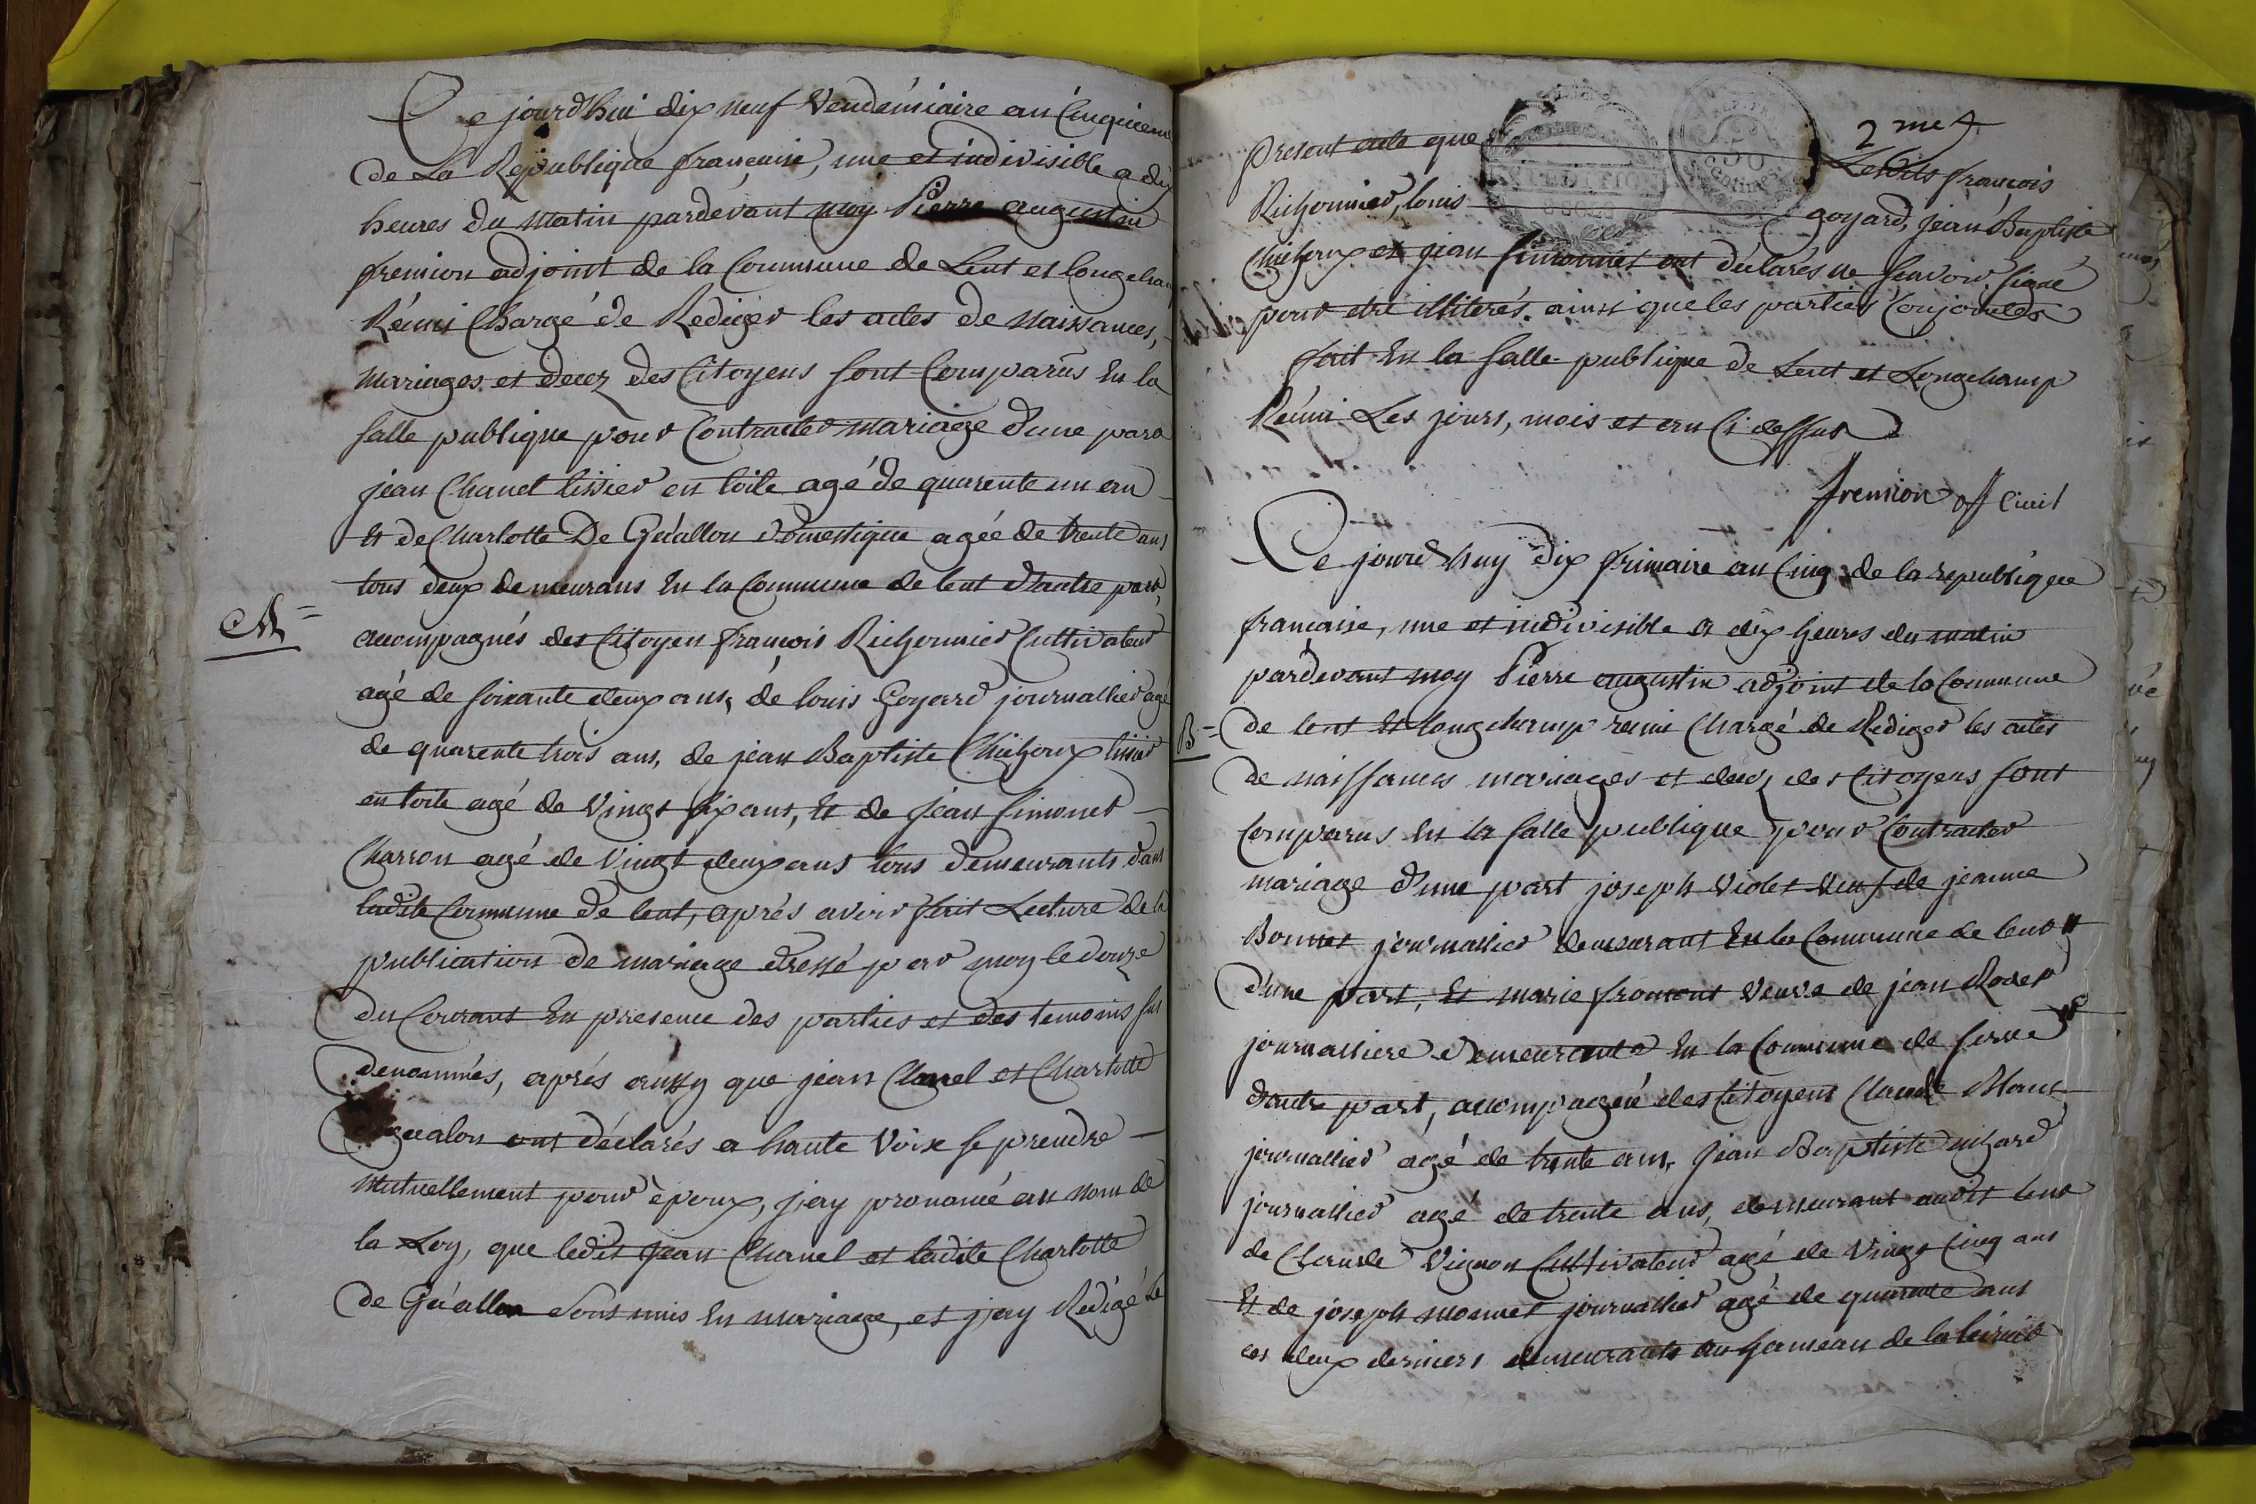 Ce jourd'hui dix neuf Vendémiaire an Cinquieme
de La République française, une et indivisible a dix
heures du matin pardevant moy Pierre augustin
fremion adjoint de la Commune de Lent et longcham
Réuni Chargé de Rediger les actes de Naissances,
mariages et decez des Citoyens sont Comparus En la
salle publique pour Contracter mariage d'une part
jean Chanel tissier en toile agé de quarente un an
Et de Charlotte De Guéallon domestique agée de trente ans
tous deux demeurans En la Commune de lent d'autre part,
accompagnés des Citoyen françois Richonnier Cultivateur
agé de soixante deux ans, de louis Goyard journallier agé
de quarente trois ans, de jean Baptiste Chichoux tissier
en toile agé de Vingt six ans, Et de jean simonet
Charron agé de Vingt deux ans tous demeurants dans
ladite Commune de lent, aprés avoir fait Lecture de la
publication de mariage dressé par moy le douze
du Courant En presence des parties et des temoins sus
denommés, aprés aussy que jean Chanel et Charlotte
guealon ont déclarés a haute Voix se prendre
Mutuellement pour époux, j'ay prononcé au nom de
la Loy, que ledit jean Chanel et ladite Charlotte
de Guéallon sont unis En mariage, et j'ay Redigé le
M =
2 me f.
présent acte que Lesdits françois
Richonnier, louis goyard, jean Baptiste
Chichoux et jean simonnet ont déclarés ne scavoir signé
pour etre illiterés. ainsi que les parties Conjointes
fait En la salle publique de Lent et Longchamp
Réuni Les jours, mois et an Ci dessus
fremion off Civil
Ce jourd'huy dix frimaire an Cinq de la republique
francaise, une et indivisible a dix heures du matin
pardevant moy Pierre augustin adjoint de la Commune
B =
de lent Et longchamp reuni Chargé de Rediger les actes
de naissances mariages et decez des Citoyens sont
Comparus En la salle publique pour Contracter
mariage d'une part joseph Violet Veuf de jeanne
Bonnet journallier demeurant En la Commune de lent
d'une part, Et marie fromont Veuve de jean Rodet
journalliere demeurante En la Commune de serve
d'autre part, accompagné des Citoyens Claude Blanc
journallier agé de trente ans, jean Baptiste
journallier agé de trente ans, demeurant audit lent
de Claude Vignon Cultivateur agé de Vingt Cinq ans
Et de joseph monnet journallier agé de quarante ans
ces deux derniers demeurants au hameau de la